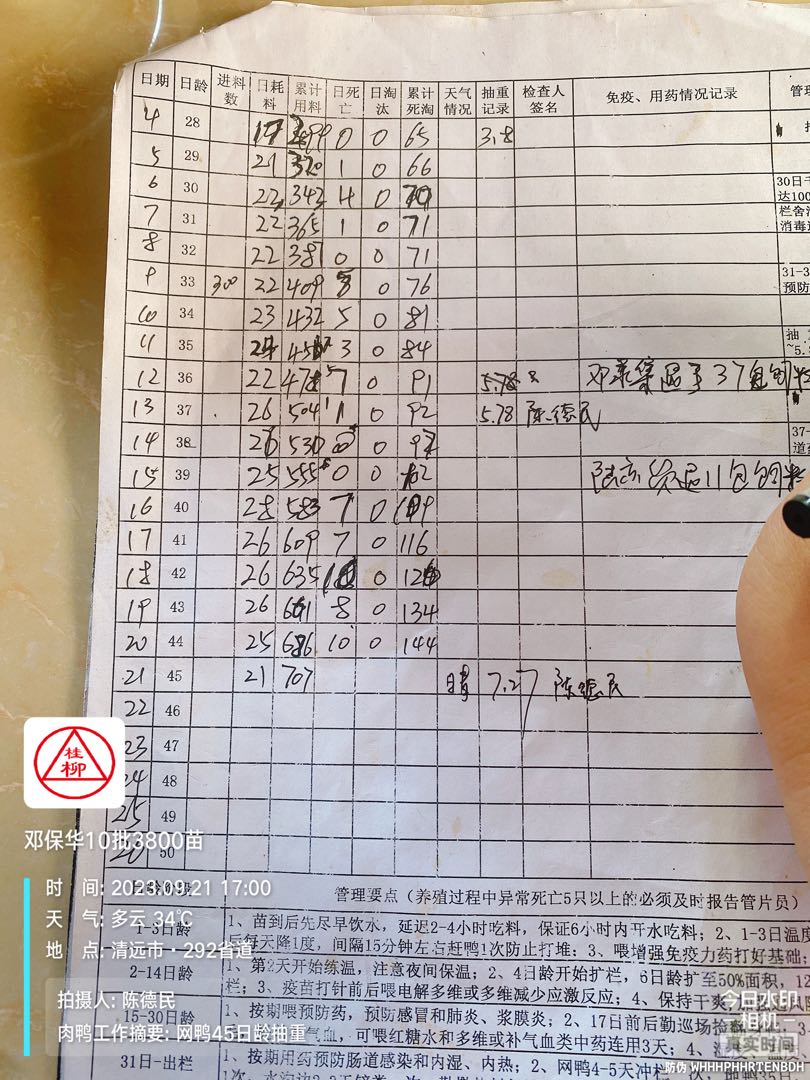 日期 日龄 进料数 日耗料 累计用料 日死亡 日淘汰 累计死淘 天气情况 抽重记录 检查人签名 免疫、用药情况记录 管理
4 28 0 0 65 3.8
5 29 21 320 1 0 66
6 30 22 342 4 0 70 30日千
7 31 22 365 1 0 71 达100
栏舍
消毒
8 32 22 387 0 0 71
9 33 300 22 409 5 0 76 31-3
预防
10 34 23 432 5 0 81
11 35 24 3 0 84 抽
~5.
12 36 22 478 7 0 91 5.78 37包饲料
13 37 26 504 1 0 92 5.78 陈德民
14 38 26 530 0 37-
道
15 39 25 555 0 0 102 11包饲料
16 40 28 583 7 0 109
17 41 26 609 7 0 116
18 42 26 635 10 0 126
19 43 26 661 8 0 134
20 44 25 686 10 0 144
21 45 21 707 晴 7.27 陈德民
22 46
23 47
24 48
25 49
50
桂柳
邓保华10批3800苗
时 间: 2021.09.21 17:00
天 气: 多云 34℃
地 点: 清远市·292省道
拍摄人: 陈德民
肉鸭工作摘要: 网鸭45日龄抽重
日龄阶段 管理要点（养殖过程中异常死亡5只以上的必须及时报告管片员）
1-3日龄 1、苗到后先尽早饮水，延迟2-4小时吃料，保证6小时内开水吃料；2、1-3日温度
后每天降1度，间隔15分钟左右赶鸭1次防止打堆；3、喂增强免疫力药打好基础；
2-14日龄 1、第2天开始练温，注意夜间保温；2、4日龄开始扩栏，6日龄扩至50%面积，12
栏；3、疫苗打针前后喂电解多维或多维减少应激反应；4、保持干爽
15-30日龄 1、按期喂预防药，预防感冒和肺炎、浆膜炎；2、17日前后勤巡场捡
气血，可喂红糖水和多维或补气血类中药连用3天；4、
31日-出栏 1、按期用药预防肠道感染和内湿、内热；2、网鸭4-5天冲栏
今日水印
相机
真实时间
防伪 WHHHPHHRTENBDH